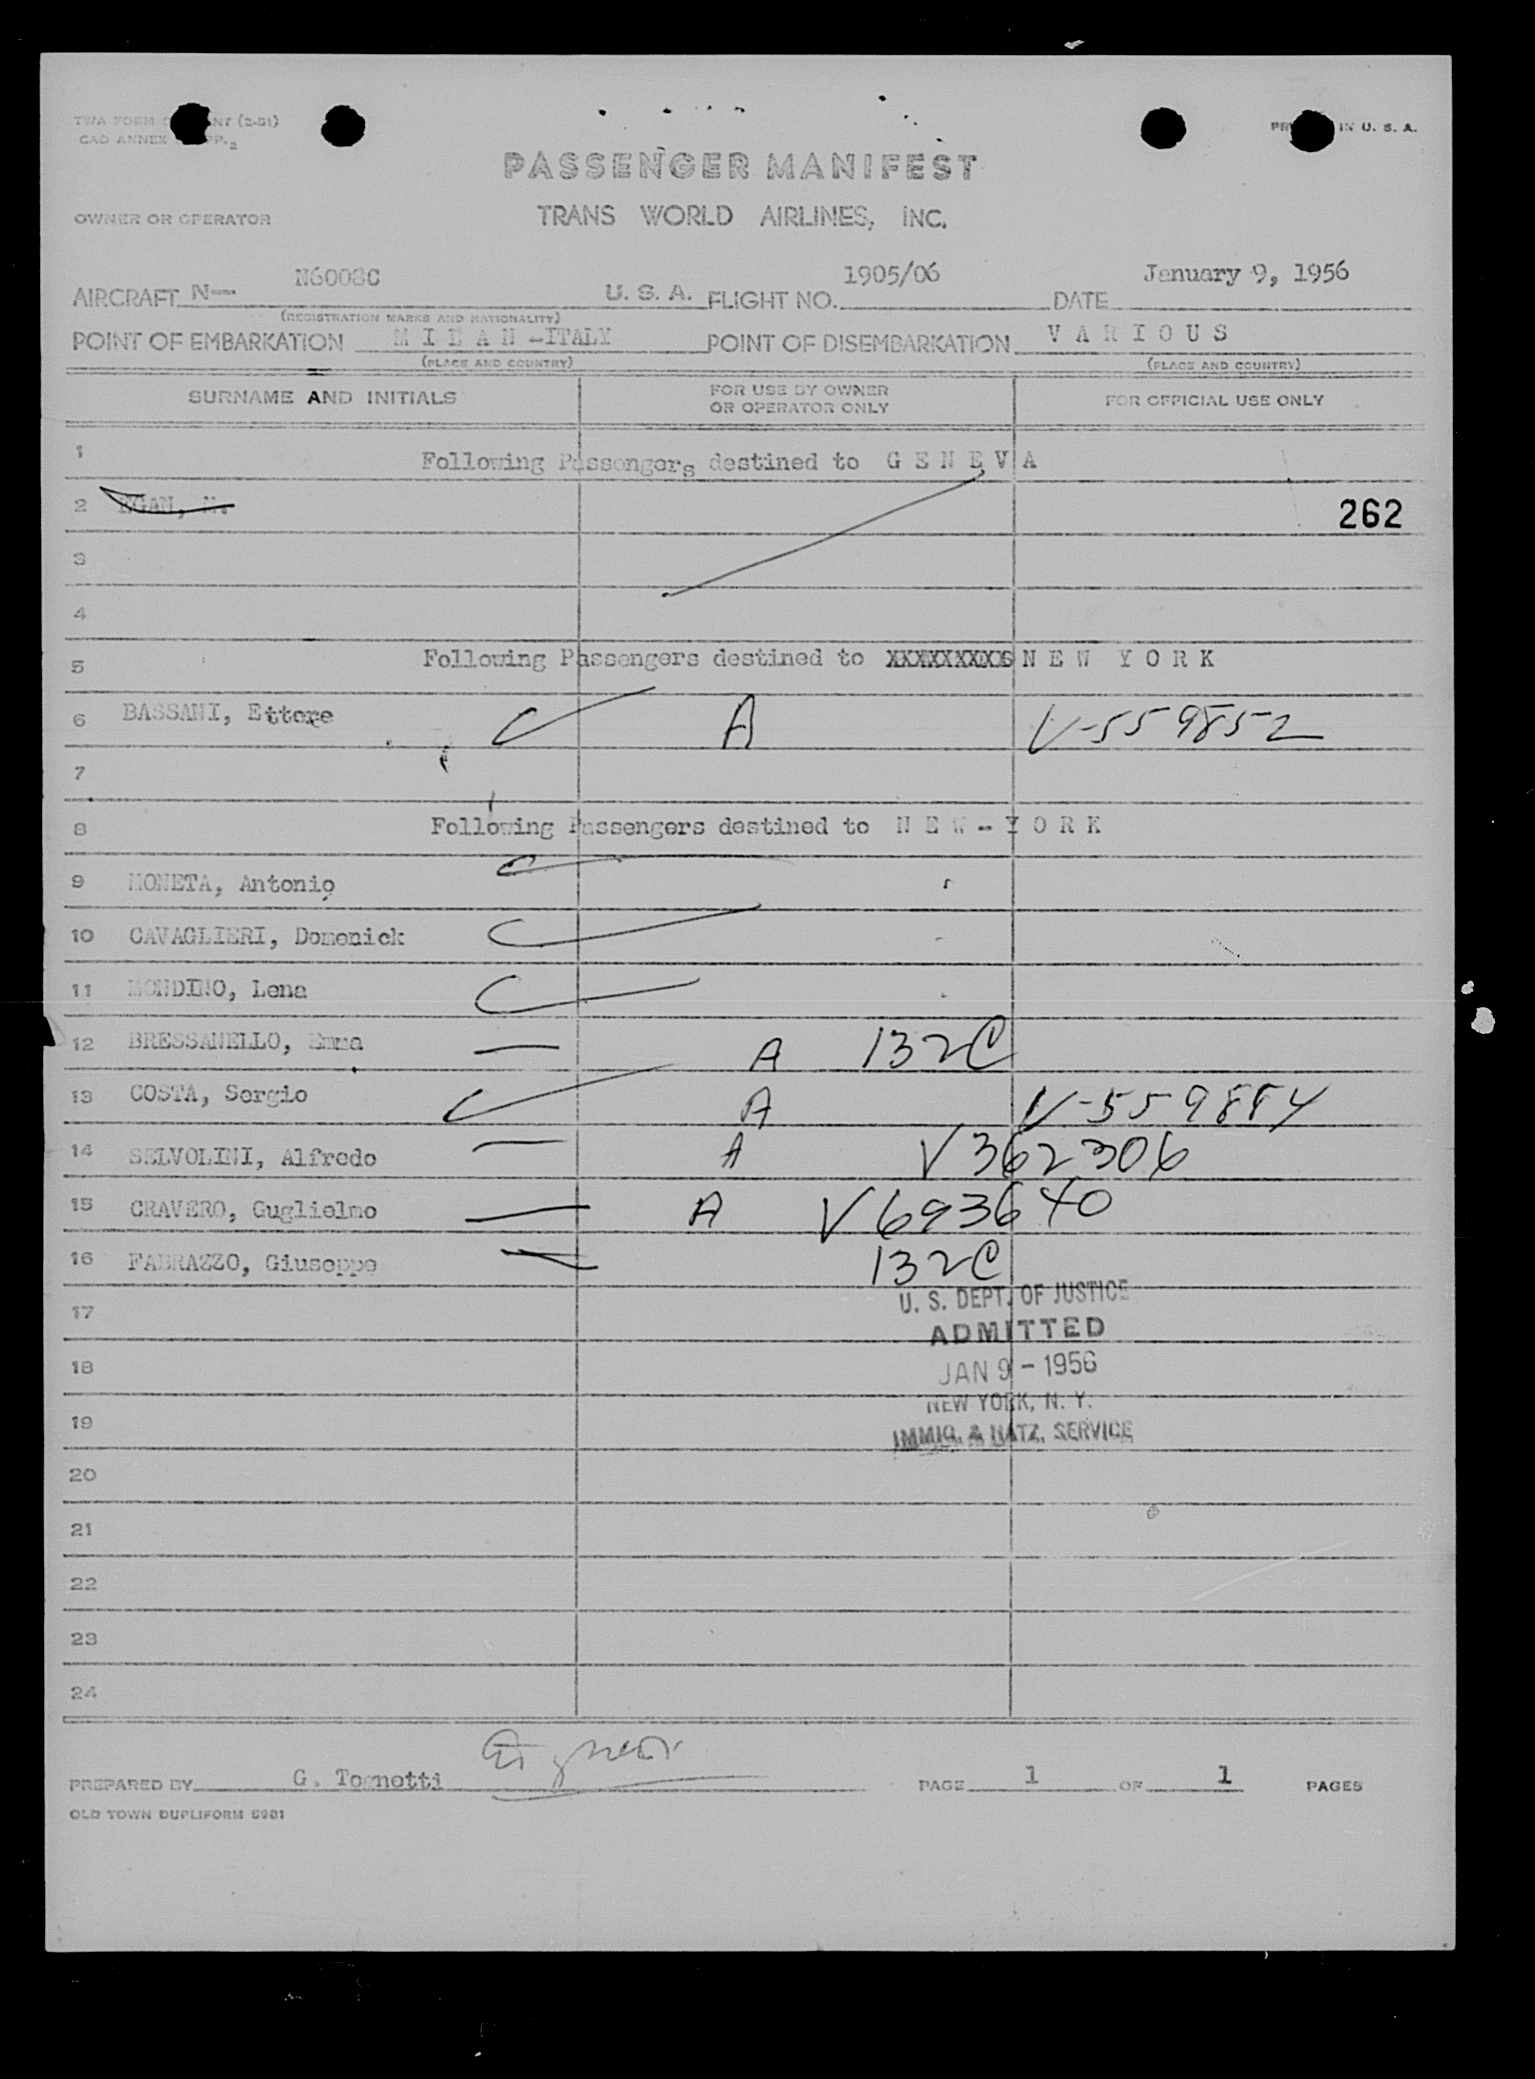 TWA FORM NT (2-51)
CAO ANNEX PP.2
IN U. S. A.
PASSENGER MANIFEST
OWNER OR OPERATOR
TRANS WORLD AIRLINES, INC.
AIRCRAFT N— N6008C U. S. A. FLIGHT NO. 1905/06 DATE January 9, 1956
(REGISTRATION MARKS AND NATIONALITY)
POINT OF EMBARKATION M I L A N -ITALY POINT OF DISEMBARKATION V A R I O U S
(PLACE AND COUNTRY) (PLACE AND COUNTRY)
SURNAME AND INITIALS FOR USE BY OWNER OR OPERATOR ONLY FOR OFFICIAL USE ONLY
1 Following Passengers destined to G E N E V A
2 EGAN, 262
3
4
5 Following Passengers destined to N E W Y O R K
6 BASSANI, Ettore A V-559852
7
8 Following Passengers destined to N E W - Y O R K
9 MONETA, Antonio
10 CAVAGLIERI, Domenick
11 MONDINO, Lena
12 BRESSANELLO, Emma A 132C
13 COSTA, Sergio A V-559884
14 SELVOLINI, Alfredo A V362306
15 CRAVERO, Guglielmo A V693640
16 FABRAZZO, Giuseppe 132C
17 U. S. DEPT. OF JUSTICE
ADMITTED
18 JAN 9 - 1956
NEW YORK, N. Y.
19 IMMIG. & NATZ. SERVICE
20
21
22
23
24
PREPARED BY G. Tognotti PAGE 1 OF 1 PAGES
OLD TOWN DUPLIFORM 5981